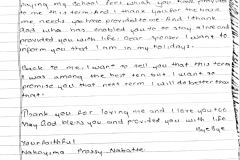 paying my school fees which you have provided
to me this term. And I thank you for the basic
me needs you have provided to me. And I thank
God who has enabled you to to stay alive and
provided you with life. Dear sponsor I want to
inform you that I am in my holidays.
Back to me. I want to tell you that this term
I was among the best ten but I want to
promise you that next term I will do better than
that.
Thank you for loving me and I love you too
May God bless you and provided you with life.
Bye Bye.
Your faithful
Nakayima Prossy Nabatte